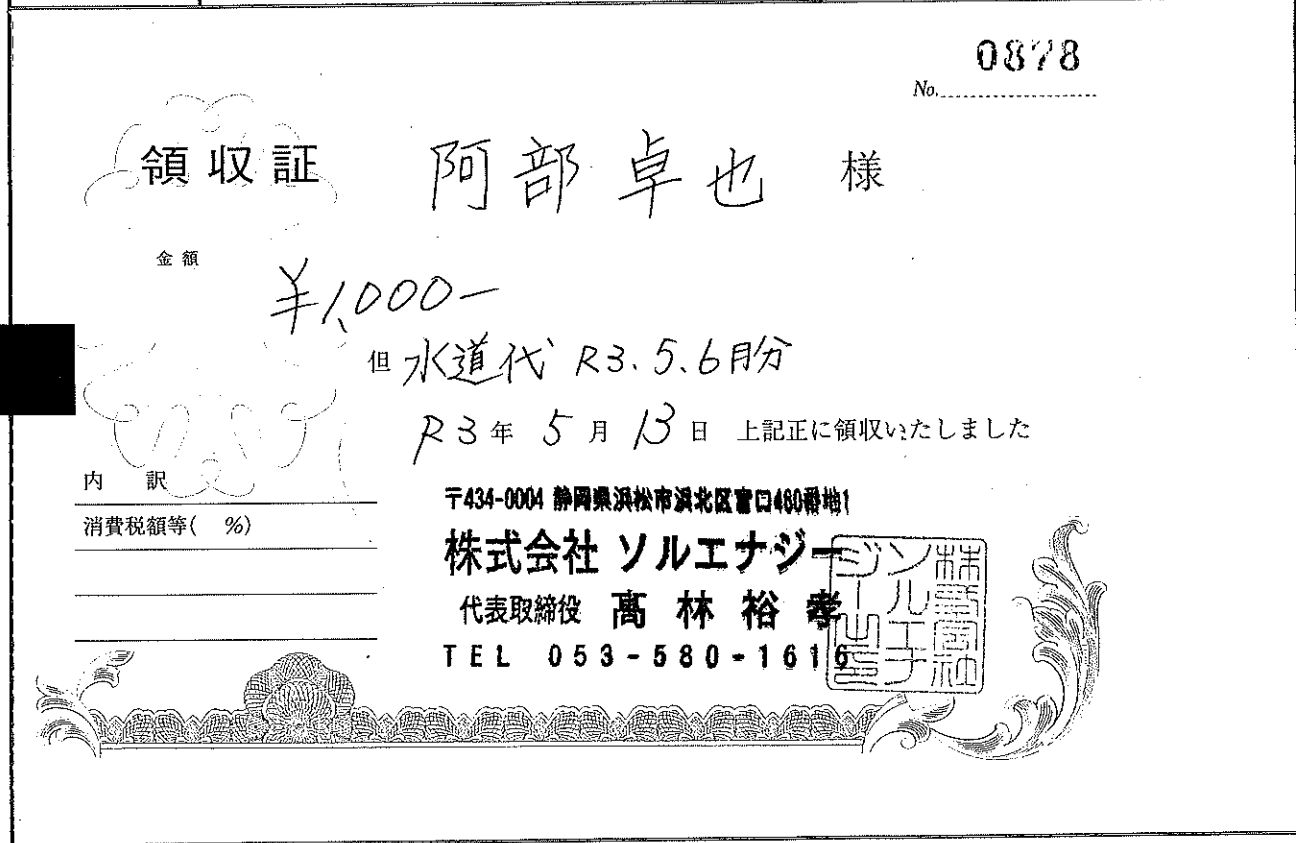 0878
No.
領収証 阿部卓也 様
金額
¥1,000-
但 水道代 R3.5.6月分
R3年 5月 13日 上記正に領収いたしました
内 訳
消費税額等( %)
〒434-0004 静岡県浜松市浜北区宮口480番地1
株式会社 ソルエナジー
代表取締役 髙林裕孝
TEL 053-580-1616
株式会社ソルエナジー之印